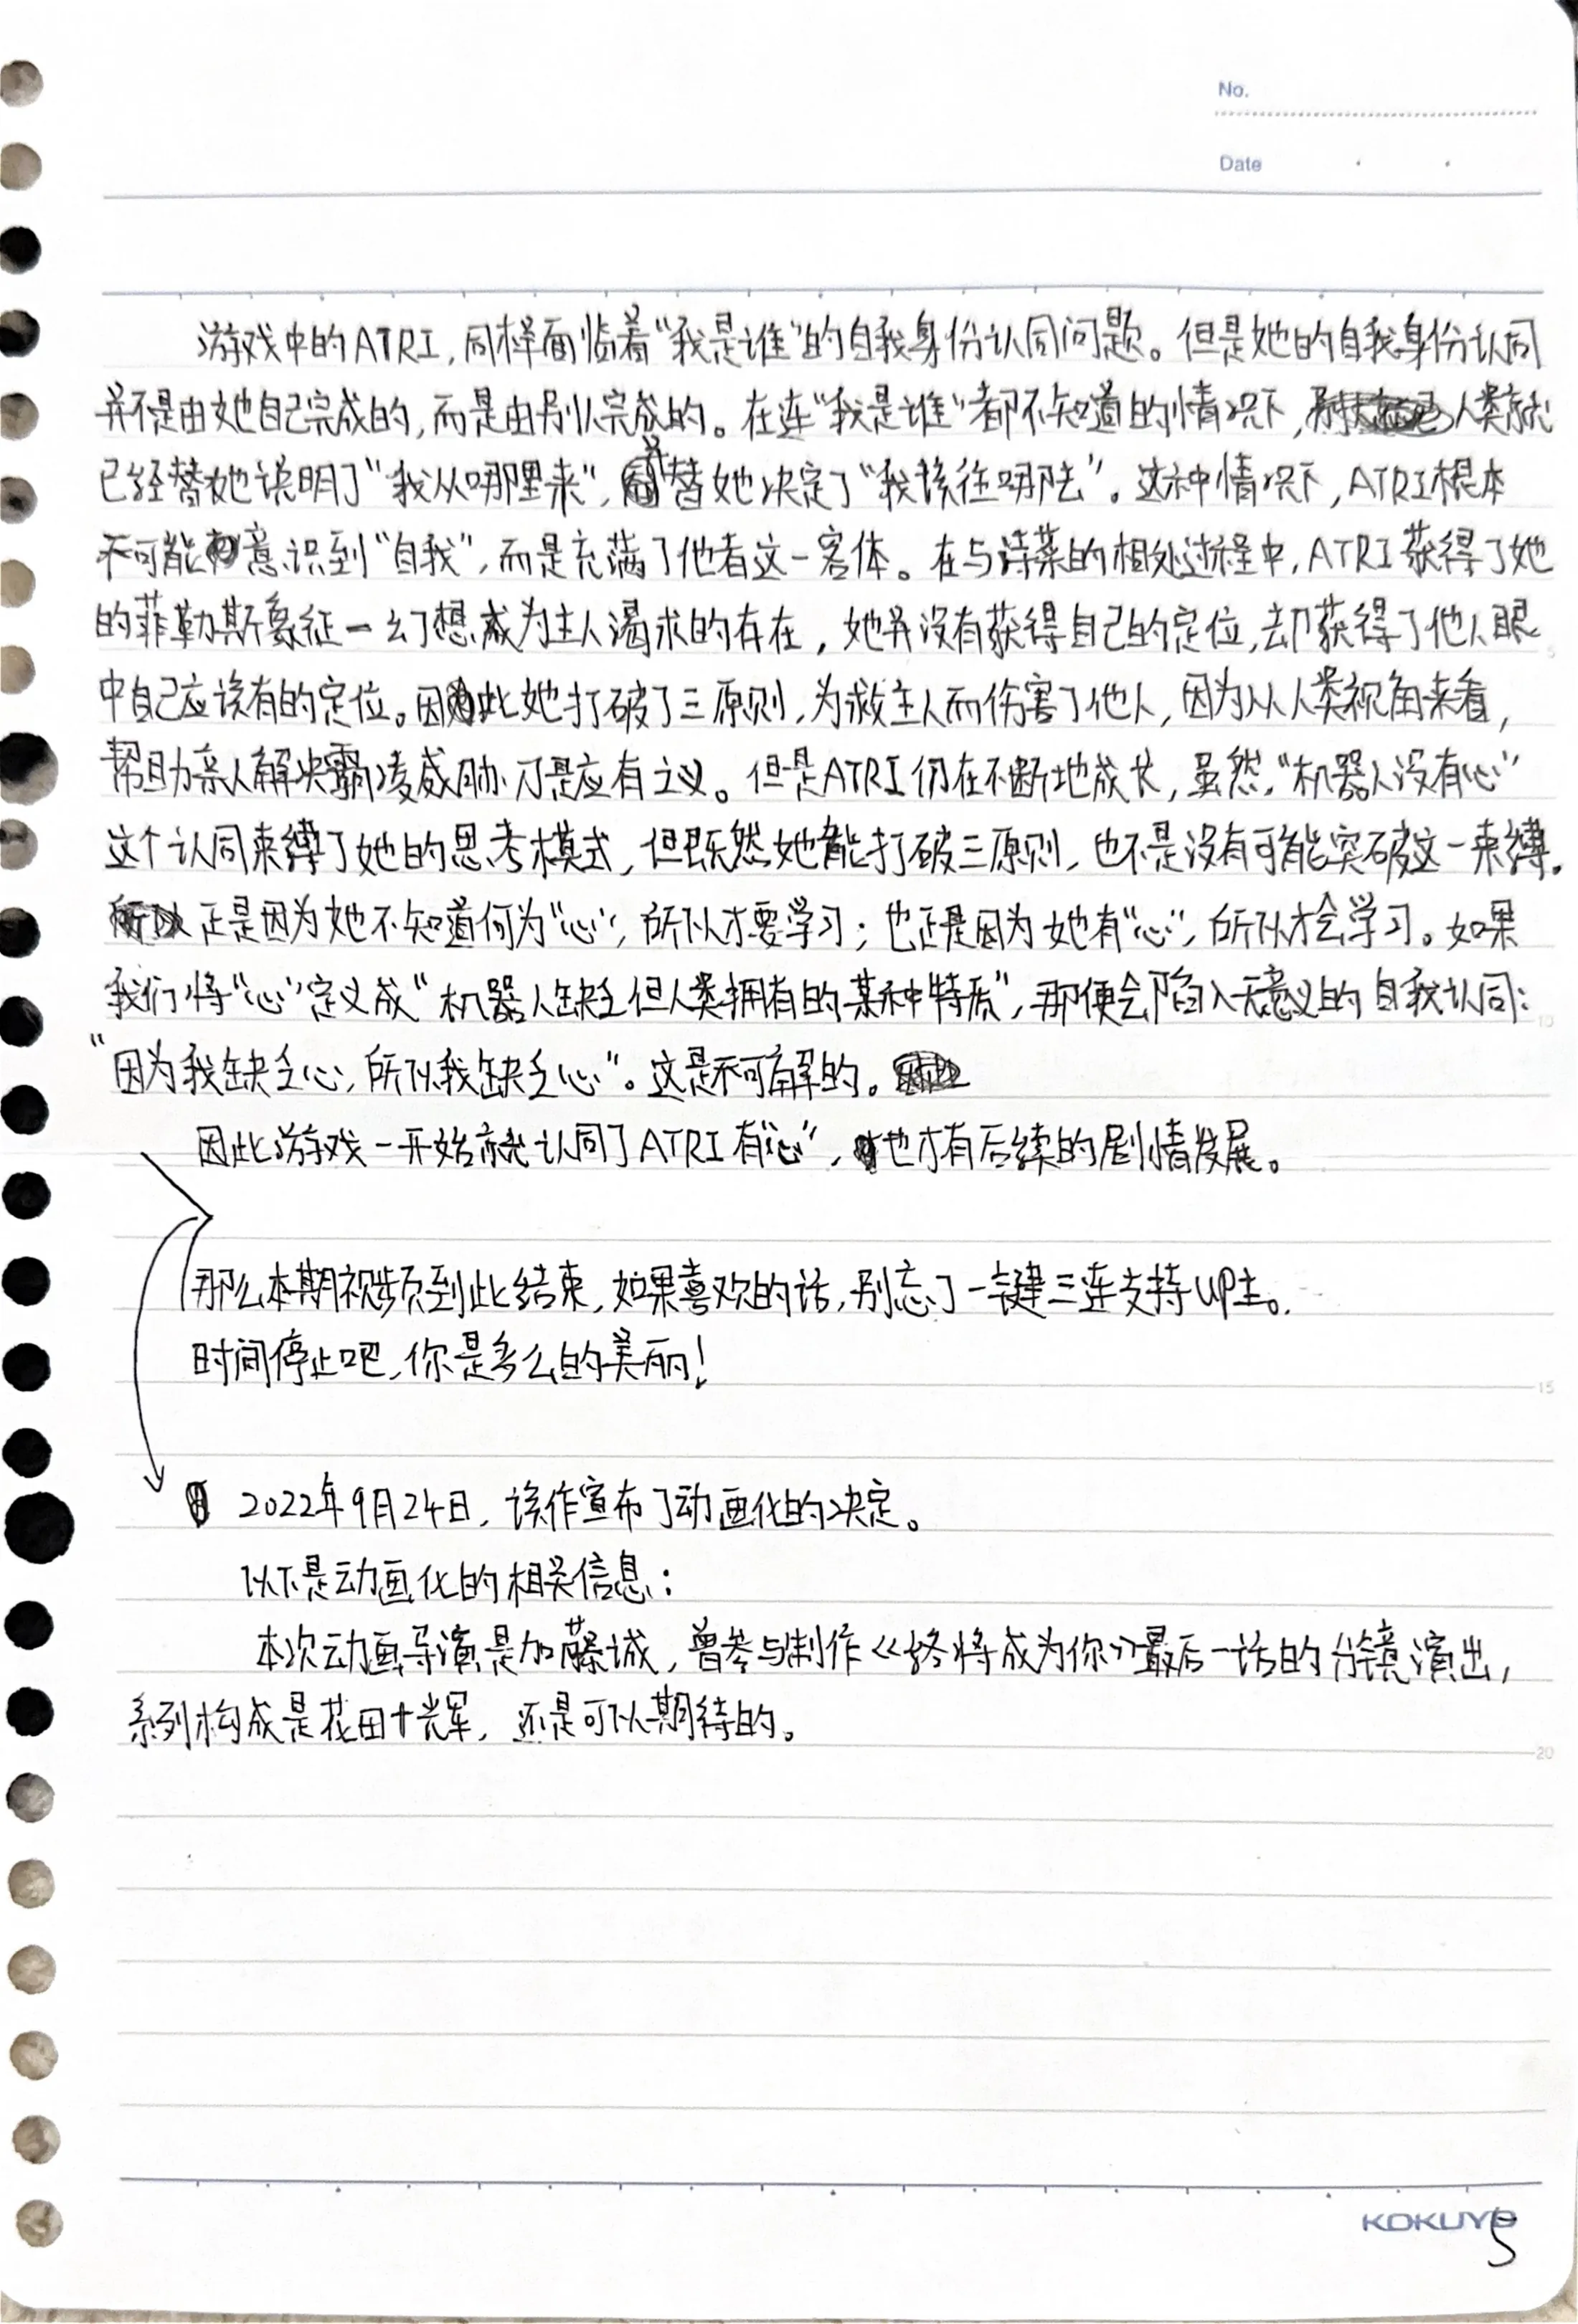 No.
Date
游戏中的ATRI,同样面临着“我是谁”的自我身份认同问题。但是她的自我身份认同
并不是由她自己完成的,而是由别人完成的。在连“我是谁”都不知道的情况下,人类就
已经替她说明了“我从哪里来”,并替她决定了“我该往哪去”。这种情况下,ATRI根本
不可能意识到“自我”,而是充满了他者这一客体。在与诗菜的相处过程中,ATRI获得了她
的菲勒斯象征—幻想成为主人渴求的存在,她并没有获得自己的定位,却获得了他人眼
中自己应该有的定位。因此她打破了三原则,为救主人而伤害了他人,因为从人类视角来看,
帮助亲人解决霸凌威胁乃是应有之义。但是ATRI仍在不断地成长,虽然,“机器人没有心”
这个认同束缚了她的思考模式,但既然她能打破三原则,也不是没有可能突破这一束缚。
正是因为她不知道何为“心”,所以才要学习;也正是因为她有“心”,所以才会学习。如果
我们将“心”定义成“机器人缺乏但人类拥有的某种特质”,那便会陷入无意义的自我认同:
“因为我缺乏心,所以我缺乏心”。这是不可解的。
因此游戏一开始就认同了ATRI有“心”,也才有后续的剧情发展。
那么本期视频到此结束,如果喜欢的话,别忘了一键三连支持UP主。
时间停止吧,你是多么的美丽!
2022年9月24日,该作宣布了动画化的决定。
以下是动画化的相关信息:
本次动画导演是加藤诚,曾参与制作《终将成为你》最后一话的分镜演出,
系列构成是花田十辉,还是可以期待的。
5
10
15
20
KOKUYO
5